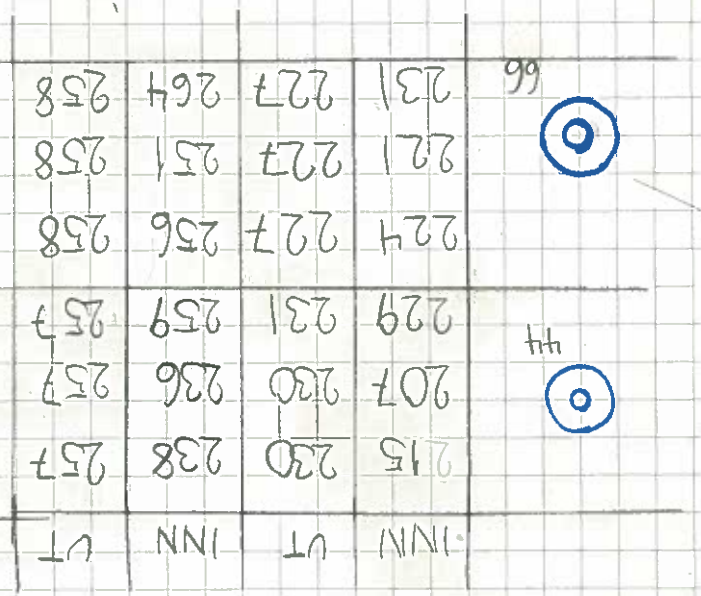 INN UT INN UT
215 230 238 257
207 230 236 257
44 229 231 259 257
224 227 256 258
221 227 251 258
66 231 227 264 258